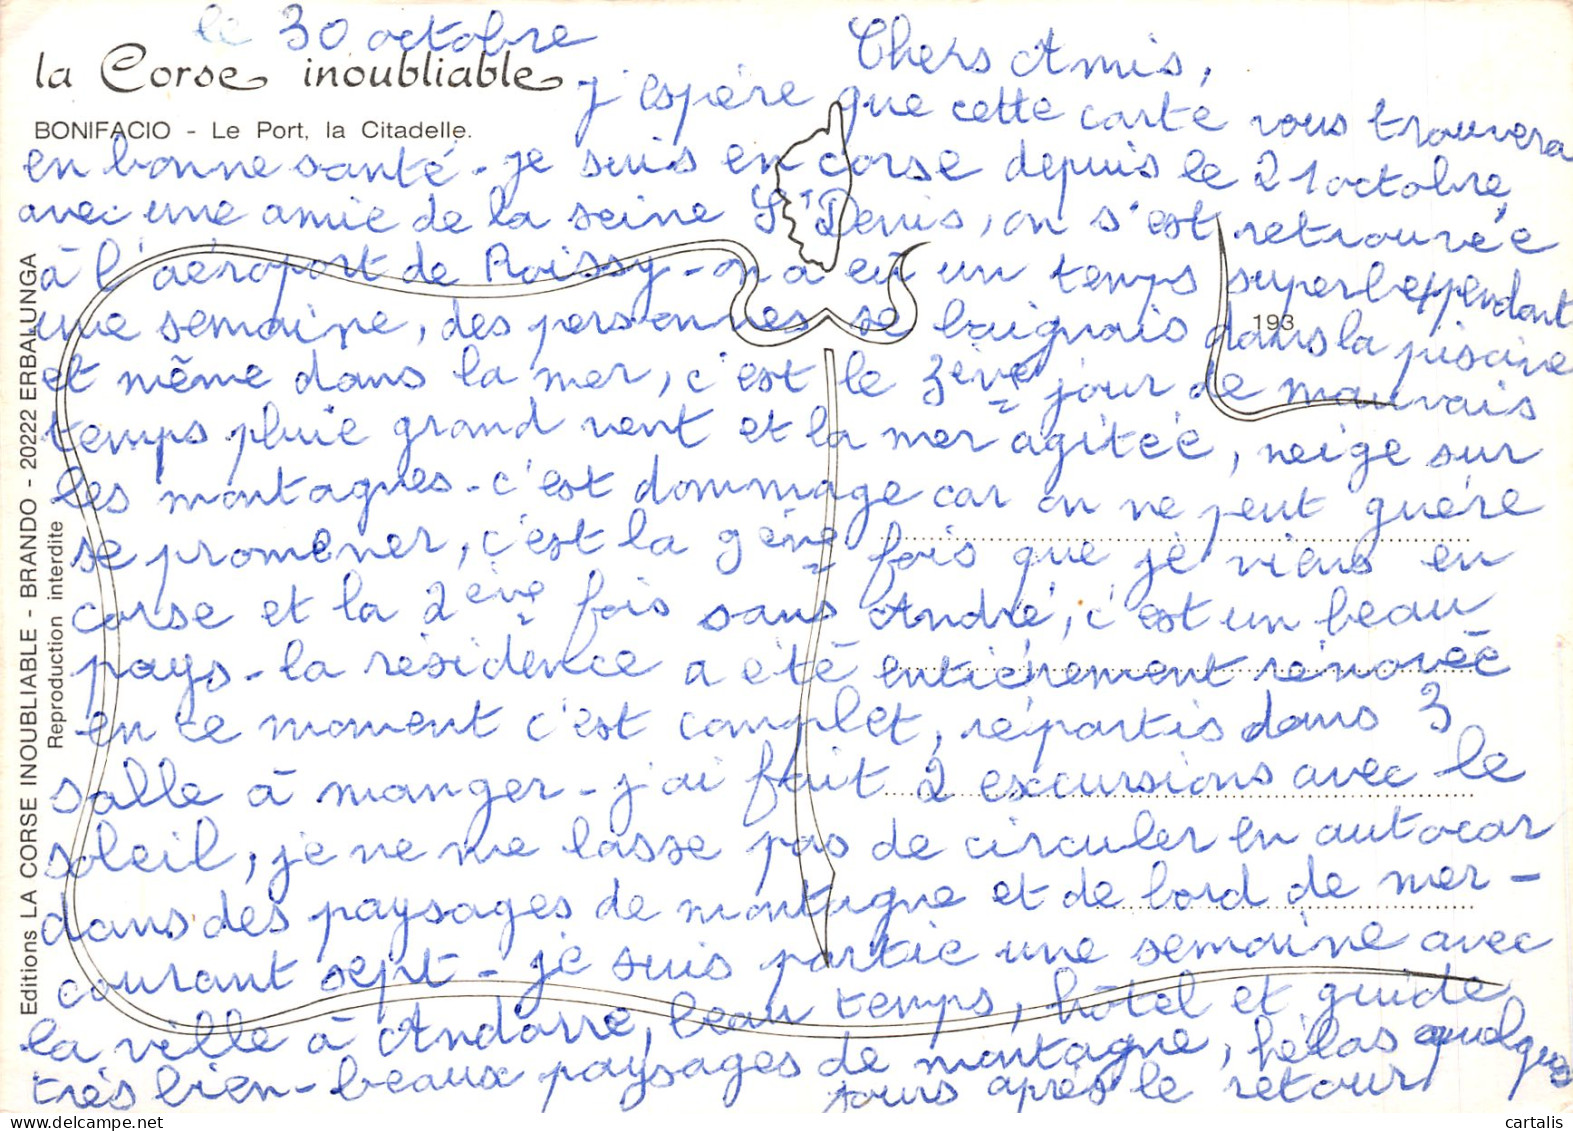 le 30 octobre
la Corse inoubliable
BONIFACIO - Le Port, la Citadelle.
Chers Amis,
j'espère que cette carte vous trouvera
en bonne santé - je suis en corse depuis le 21 octobre,
avec une amie de la seine St Denis, on s'est retrouvée
à l'aéroport de Roissy - on a eu un temps superbe pendant
une semaine, des personnes se baignais dans la piscine
et même dans la mer, c'est le 3ème jour de mauvais
temps pluie grand vent et la mer agitée, neige sur
les montagnes - c'est dommage car on ne peut guère
se promener, c'est la 9ème fois que je viens en
corse et la 2ème fois sans André, c'est un beau
pays - la résidence a été entièrement rénovée
en ce moment c'est complet, répartis dans 3
salle à manger - j'ai fait 2 excursions avec le
soleil, je ne me lasse pas de circuler en autocar
dans des paysages de montagne et de bord de mer -
courant sept - je suis partie une semaine avec
la ville à Andorre, beau temps, hôtel et guide
très bien - beaux paysages de montagne, hélas quelques
jours après le retour
193
Editions LA CORSE INOUBLIABLE - BRANDO - 20222 ERBALUNGA
Reproduction interdite
cartalis.com